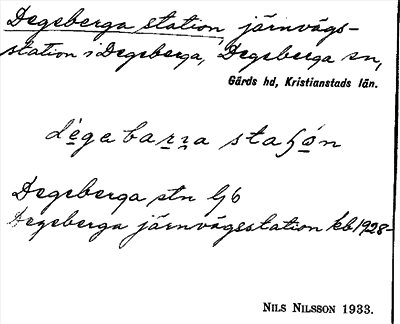 Degeberga station, järnvägs-
station i Degeberga, Degeberga sn,
Gärds hd, Kristianstads län.
station
Degeberga stn
Degeberga järnvägsstation kb 1928-
NILS NILSSON 1933.